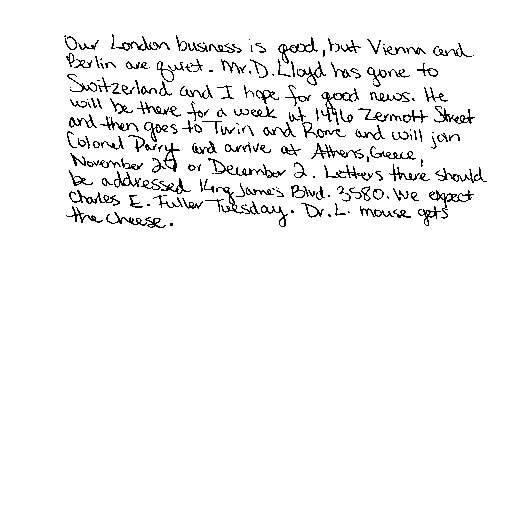 Our London business is good, but Vienna and
Berlin are quiet. Mr. D. Lloyd has gone to
Switzerland and I hope for good news. He
will be there for a week at 1496 Zermott Street
and then goes to Turin and Rome and will join
Colonel Parry and arrive at Athens, Greece,
November 29 or December 2. Letters there should
be addressed King James Blvd. 3580. We expect
Charles E. Fuller Tuesday. Dr. L. mouse gets
the cheese.